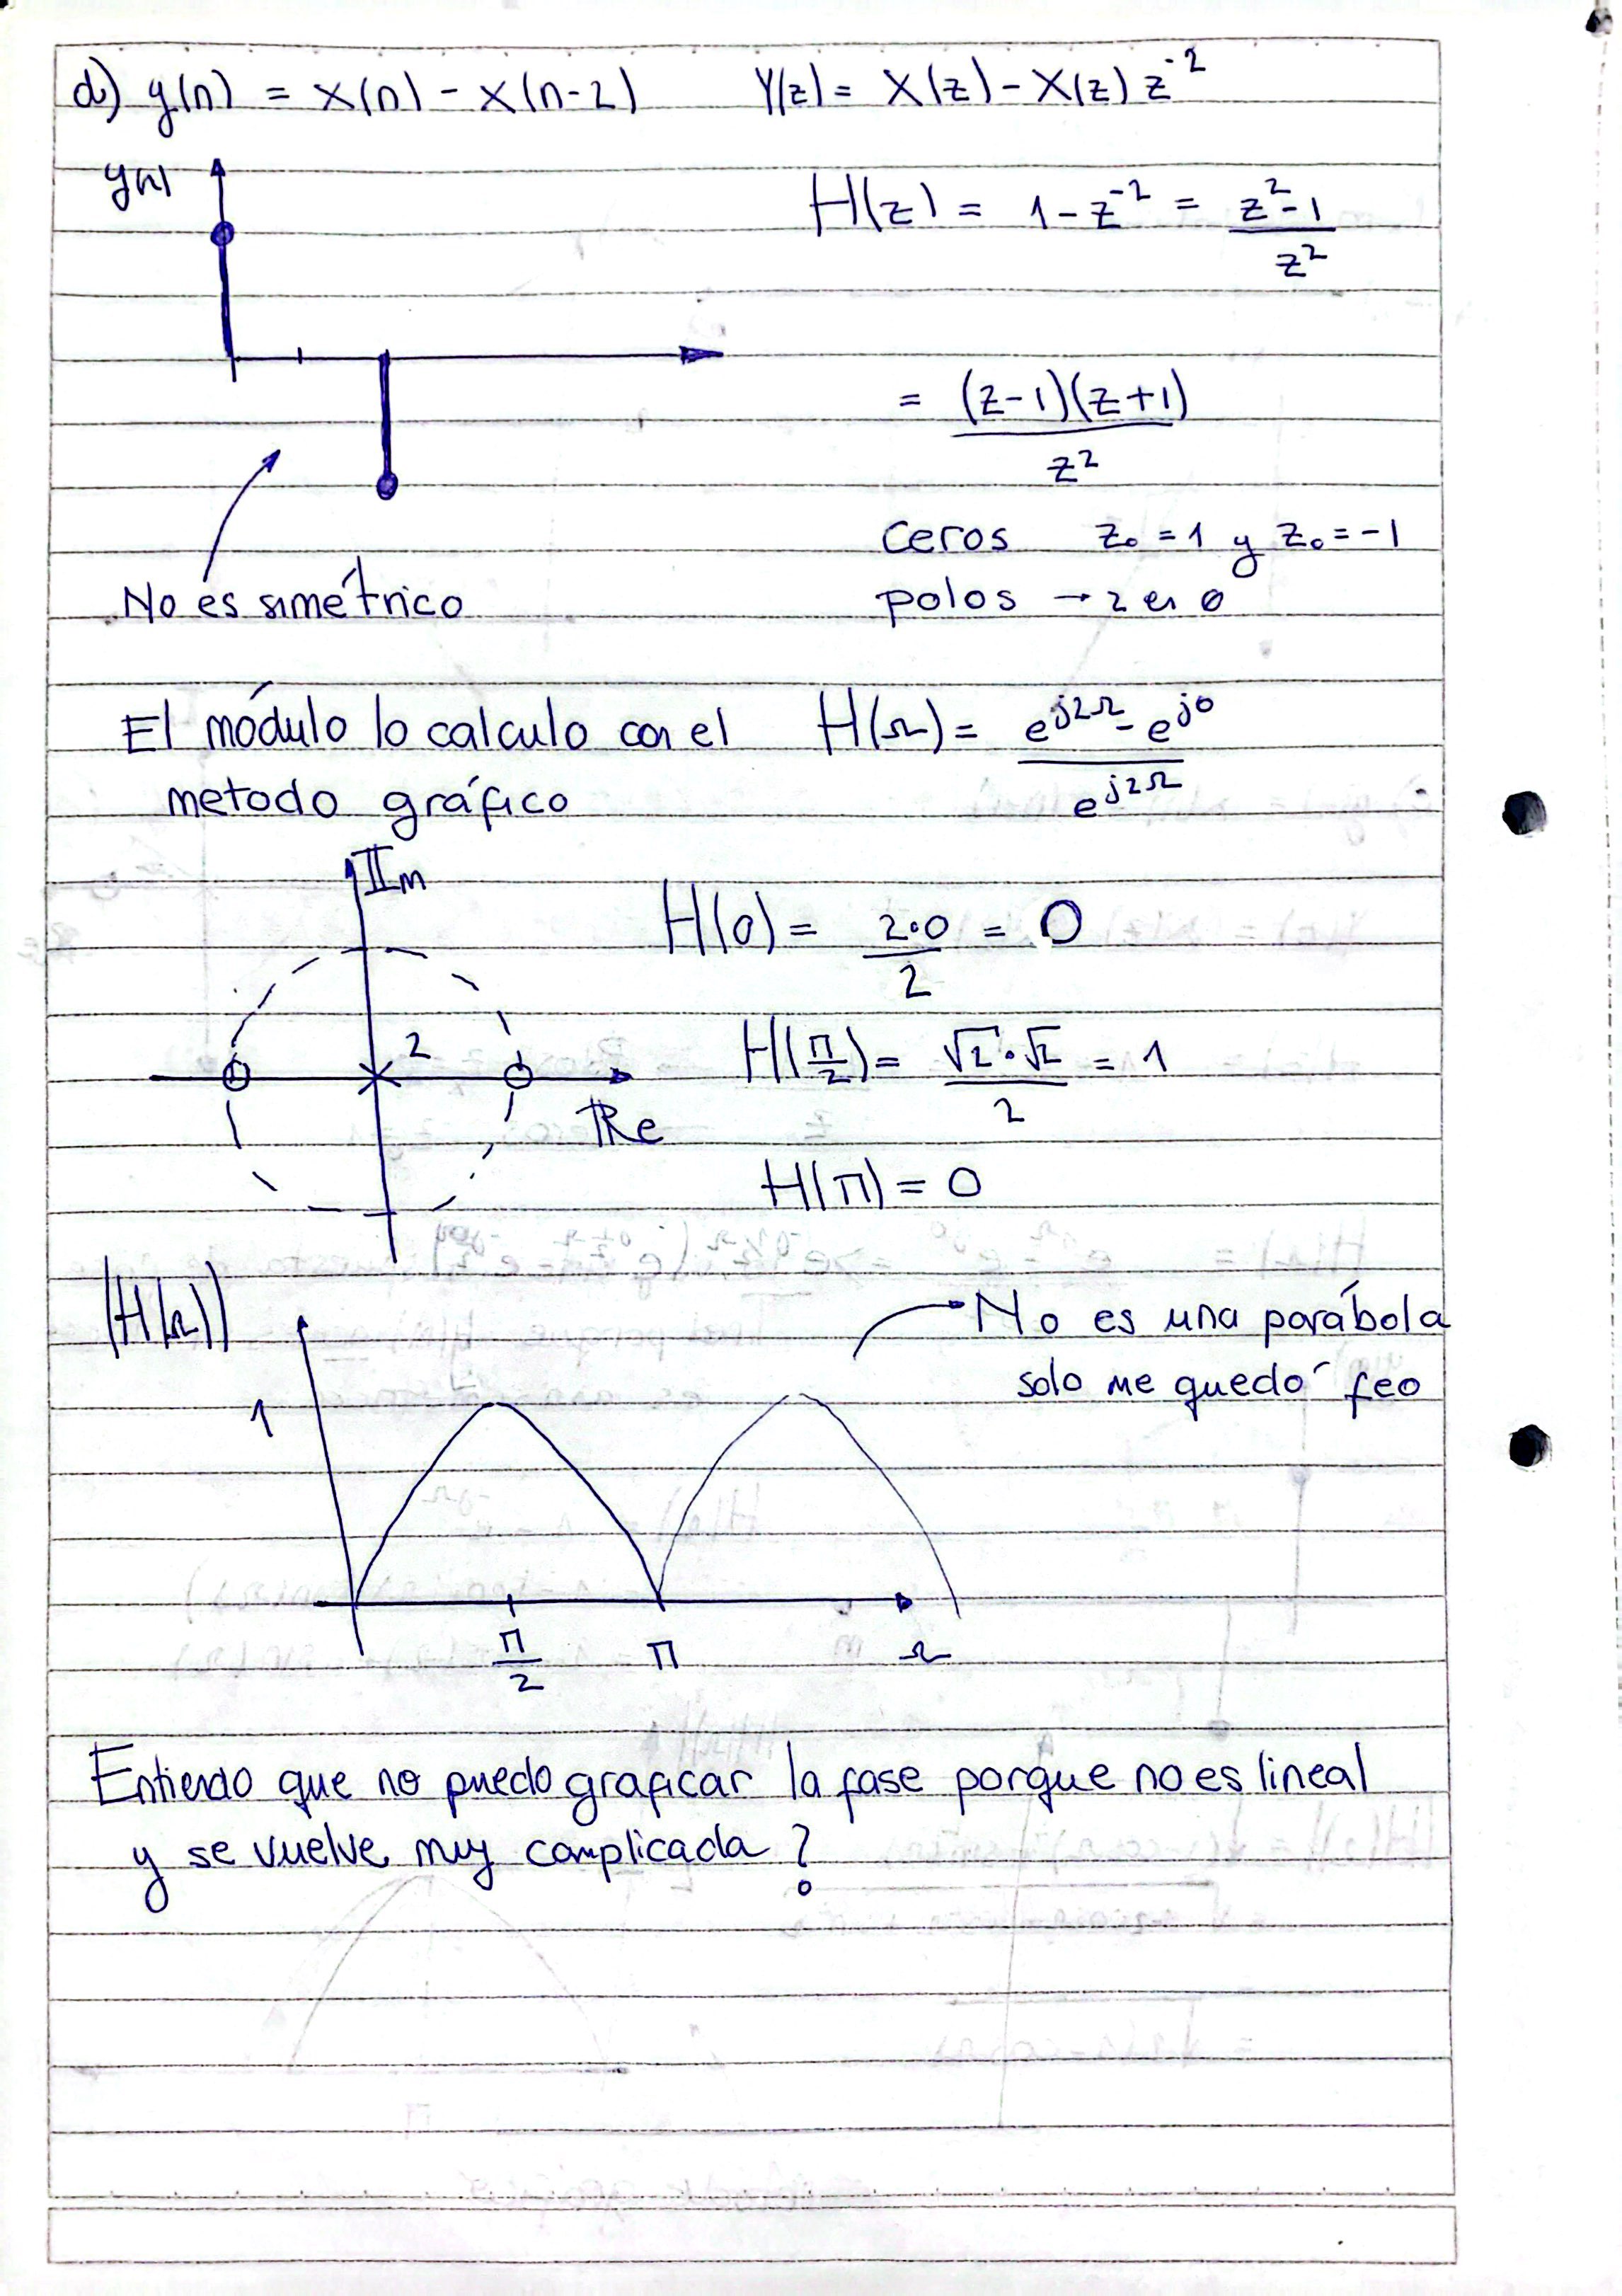 d) y(n) = x(n) - x(n-2)    Y(z) = X(z) - X(z) z⁻²
y(n)
H(z) = 1 - z⁻² = (z² - 1)/z²
= (z-1)(z+1)/z²
ceros    z₀ = 1 y z₀ = -1
No es simétrico
polos → 2 en 0
El módulo lo calculo con el
metodo gráfico
H(Ω) = (e^{j2Ω} - e^{j0})/e^{j2Ω}
IIm
H(0) = 2·0/2 = 0
2
H(π/2) = √2·√2/2 = 1
IRe
H(π) = 0
|H(Ω)|
No es una parábola
solo me quedó feo
1
π/2    π    Ω
Entiendo que no puedo graficar la fase porque no es lineal
y se vuelve muy complicada?